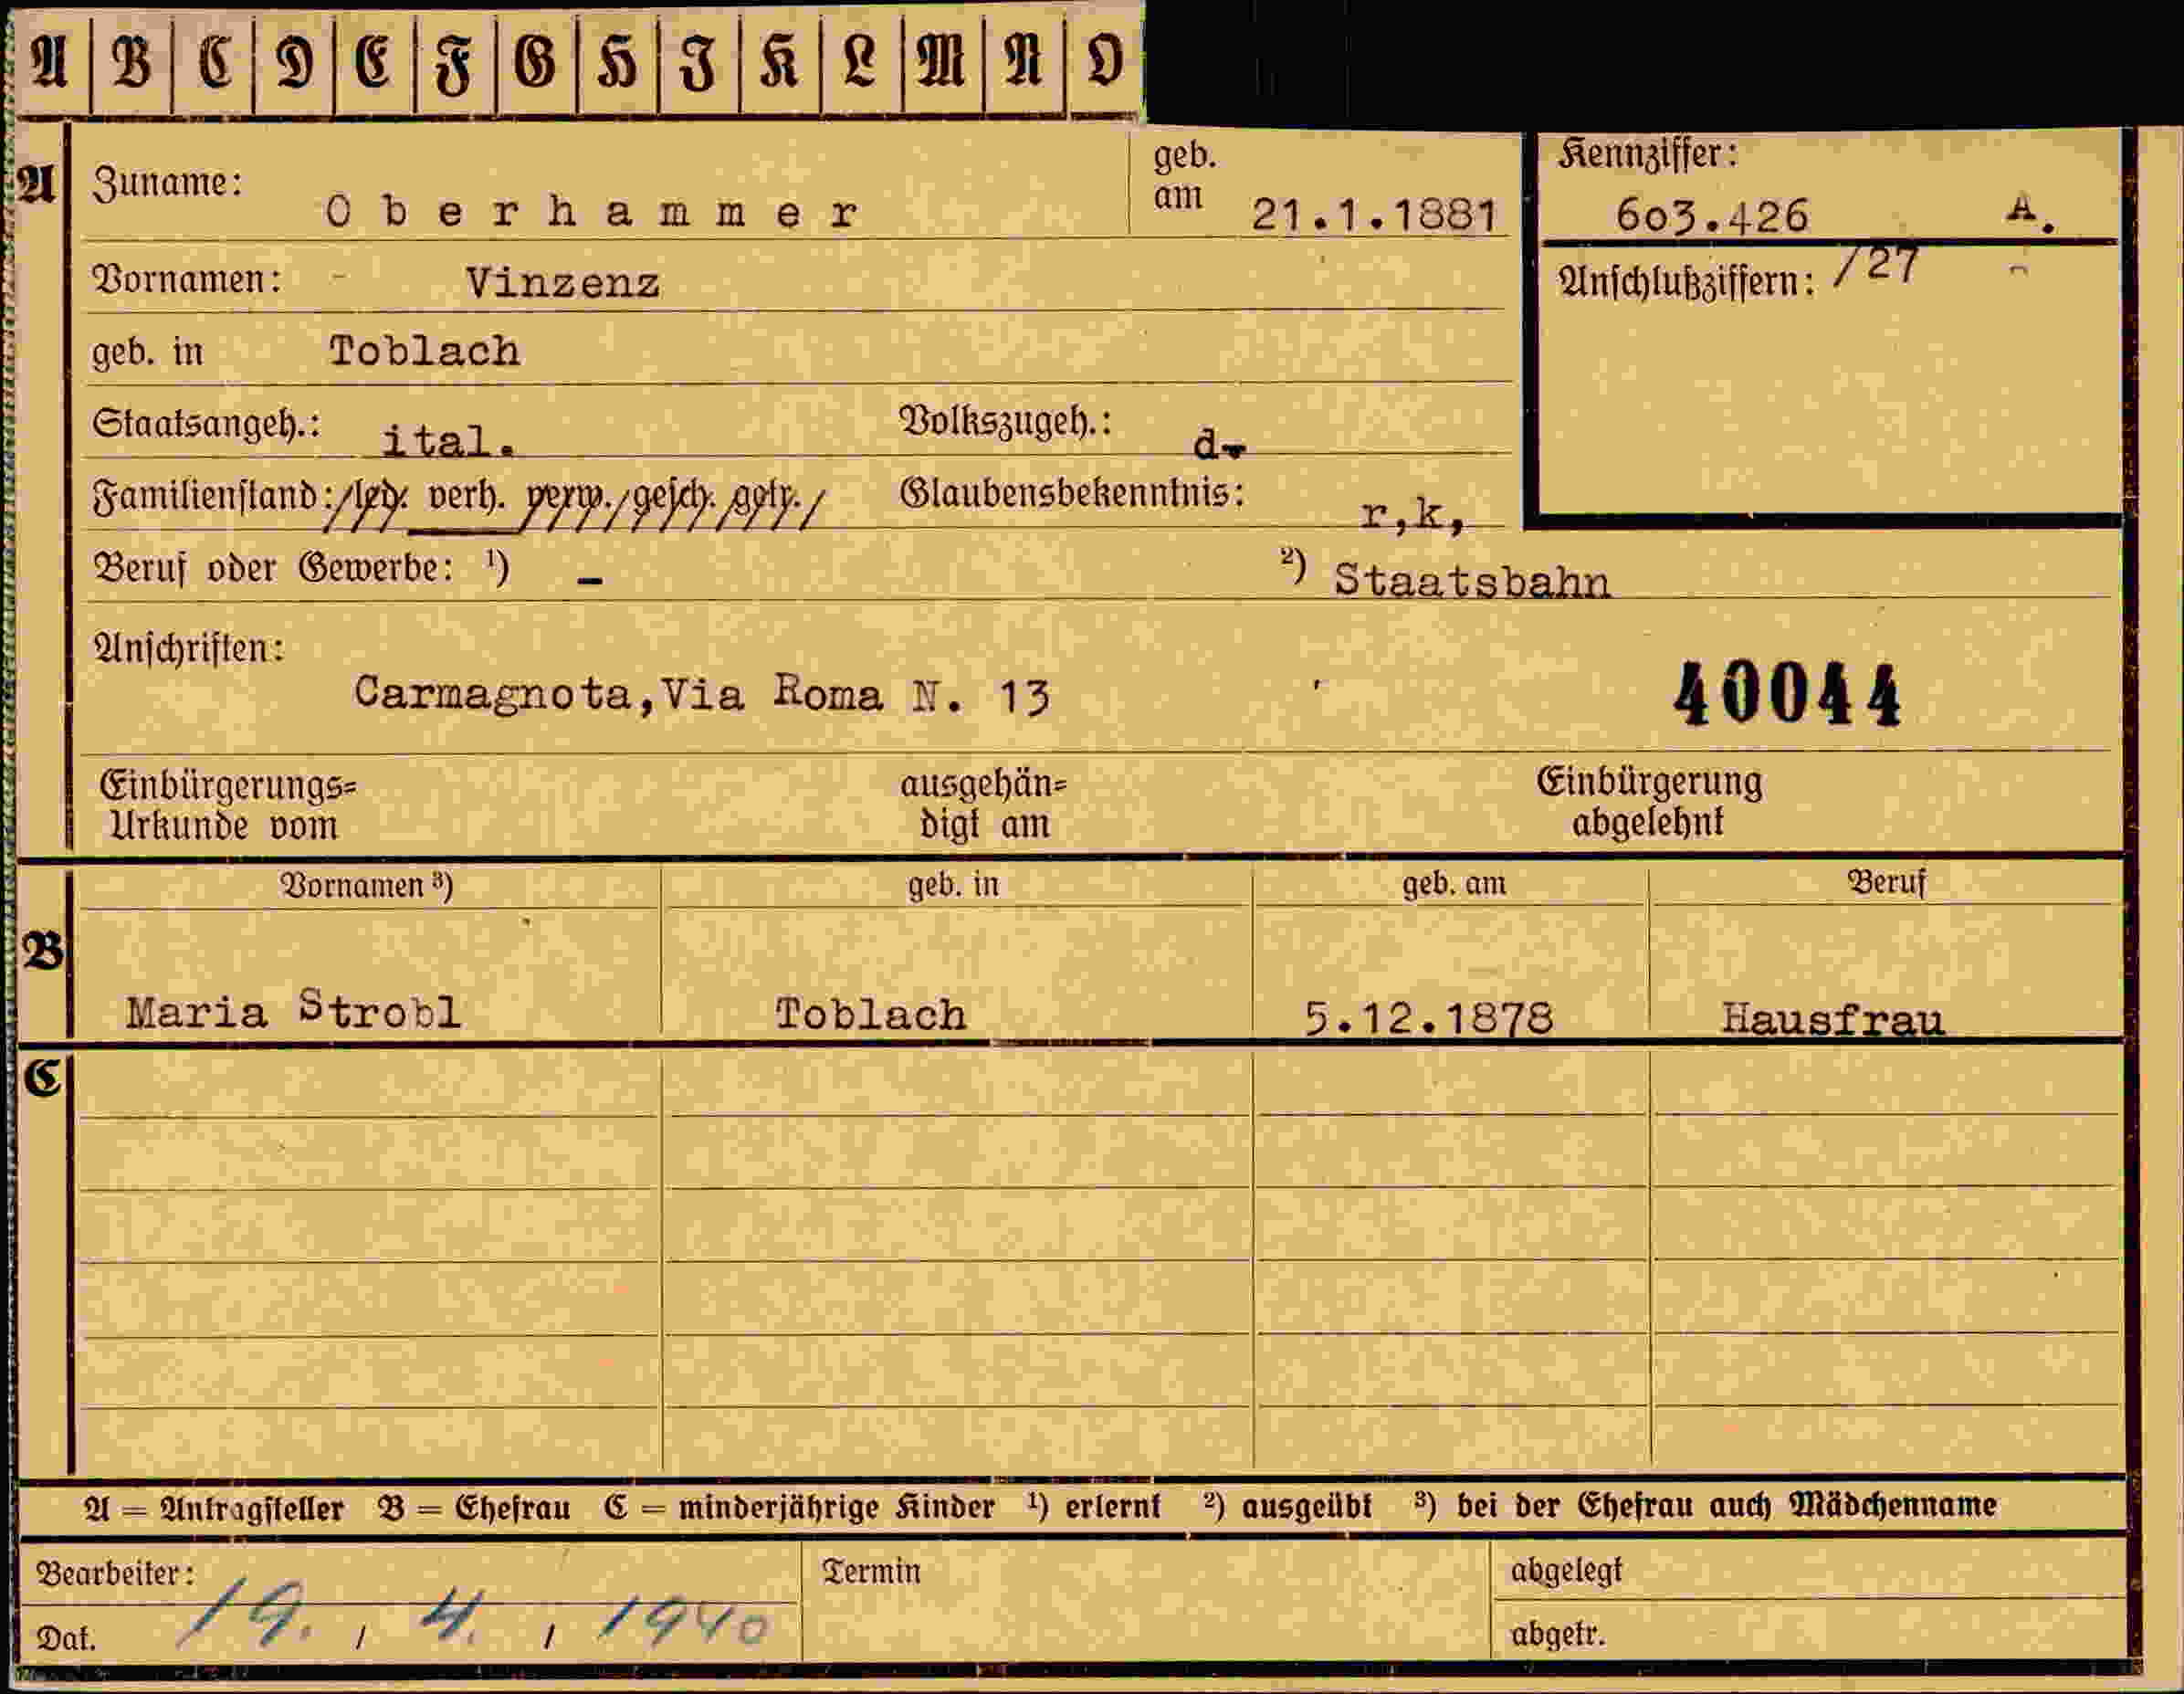 A B C D E F G H I K L M N O
A Zuname: Oberhammer geb. am 21.1.1881 Kennziffer: 603.426 A.
Vornamen: Vinzenz Anschlußziffern: /27
geb. in Toblach
Staatsangeh.: ital. Volkszugeh.: d.
Familienstand: led. verh. verw. gesch. getr. Glaubensbekenntnis: r,k,
Beruf oder Gewerbe: ¹) - ²) Staatsbahn
Anschriften:
Carmagnota,Via Roma N. 13 40044
Einbürgerungs= ausgehän= Einbürgerung
Urkunde vom digt am abgelehnt
Vornamen ³) geb. in geb. am Beruf
B
Maria Strobl Toblach 5.12.1878 Hausfrau
C
A = Antragsteller B = Ehefrau C = minderjährige Kinder ¹) erlernt ²) ausgeübt ³) bei der Ehefrau auch Mädchenname
Bearbeiter: Termin abgelegt
Dat. 19. / 4. / 1940 abgetr.